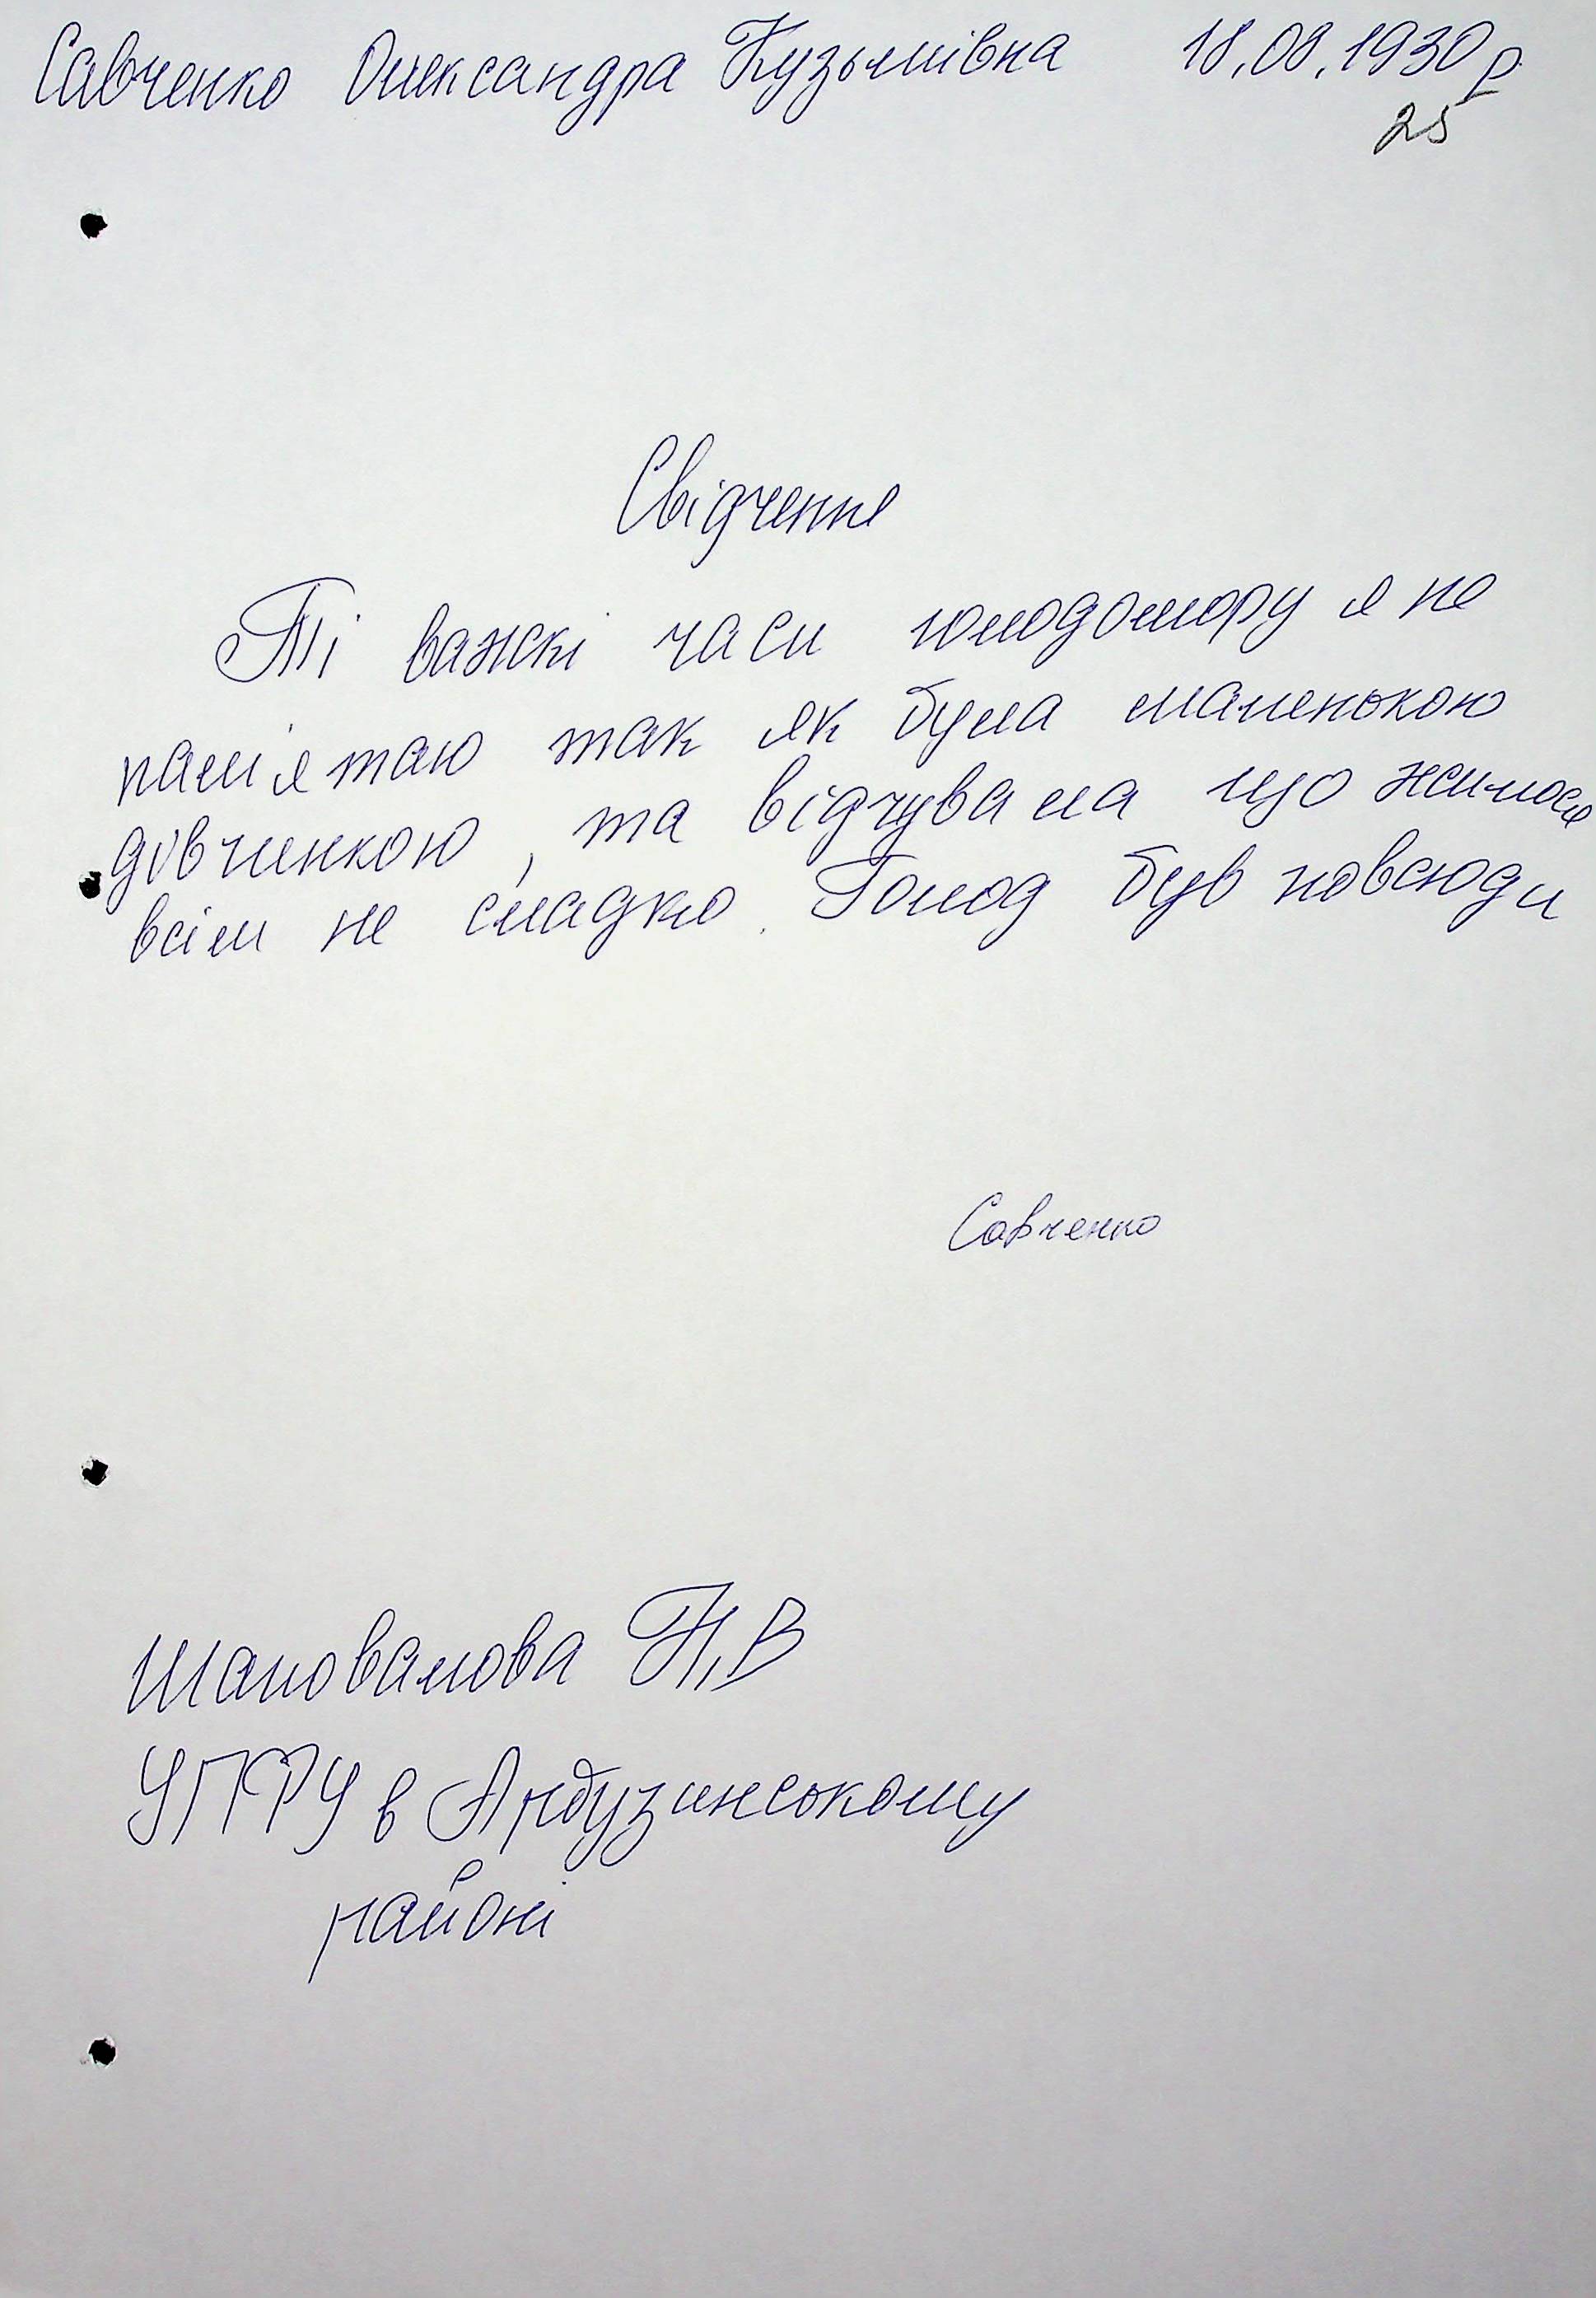 Савченко Олександра Кузьмівна 18.08.1930 р.
25
Свідчення
Ті важкі часи голодомору я не
пам'ятаю так як була маленькою
дівчинкою, та відчувала що жилося
всім не сладко. Голод був повсюди
Савченко
Шаповалова Н.В
УПФУ в Арбузинському
районі